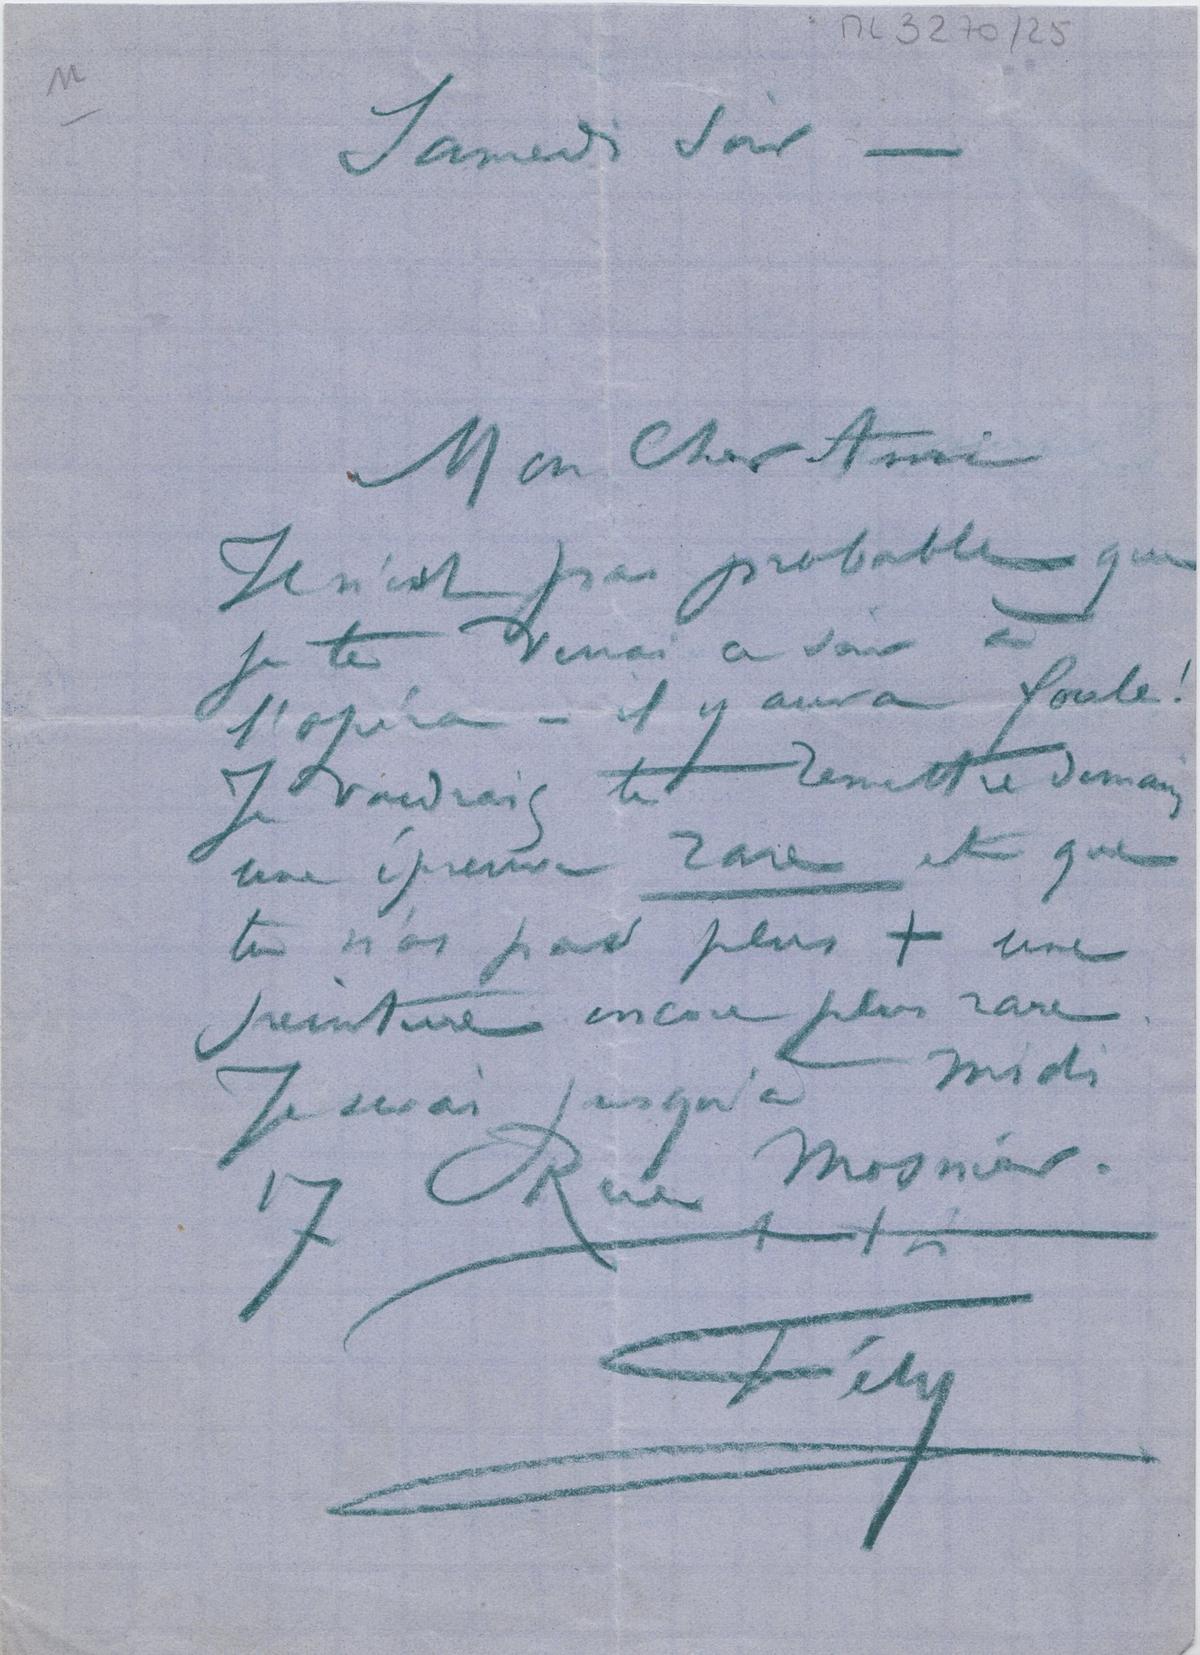 ML 3270/25
Samedi soir —
Mon Cher Ami
Il n'est pas probable que
je te verrai ce soir à
l'opéra – il y aura foule!
Je voudrais te remettre demain
une épreuve rare et que
tu n'as pas plus + une
peinture encore plus rare.
Je serai jusqu'à midi
17 Rue Mosnier.
à toi
Fély